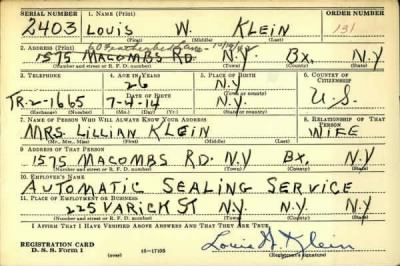 SERIAL NUMBER 1. NAME (Print) ORDER NUMBER
2403 LOUIS W. KLEIN 131
(First) (Middle) (Last)
2. ADDRESS (Print)
1575 MACOMBS RD. N.Y Bx. N.Y
(Number and street or R. F. D. number) (Town) (County) (State)
3. TELEPHONE 4. AGE IN YEARS 5. PLACE OF BIRTH 6. COUNTRY OF CITIZENSHIP
26 N.Y.
DATE OF BIRTH (Town or county)
TR.2-1665 7-4-14 N.Y. U.S.
(Exchange) (Number) (Mo.) (Day) (Yr.) (State or country)
7. NAME OF PERSON WHO WILL ALWAYS KNOW YOUR ADDRESS 8. RELATIONSHIP OF THAT PERSON
MRS. LILLIAN KLEIN WIFE
(Mr., Mrs., Miss) (First) (Middle) (Last)
9. ADDRESS OF THAT PERSON
1575 MACOMBS RD. N.Y Bx. N.Y
(Number and street or R. F. D. number) (Town) (County) (State)
10. EMPLOYER'S NAME
AUTOMATIC SEALING SERVICE
11. PLACE OF EMPLOYMENT OR BUSINESS
225 VARICK ST N.Y N.Y
(Number and street or R. F. D. number) (Town) (County) (State)
I AFFIRM THAT I HAVE VERIFIED ABOVE ANSWERS AND THAT THEY ARE TRUE.
REGISTRATION CARD Louis W. Klein
D. S. S. Form 1 (over) 16—17105 (Registrant's signature)